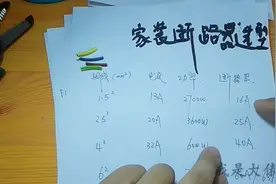 家装断路器选型
(mm²) 电流 功率 断路器
1.5² 13A 2700W 16A
2.5² 20A 3600W 25A
4² 32A 6000W 40A
6²